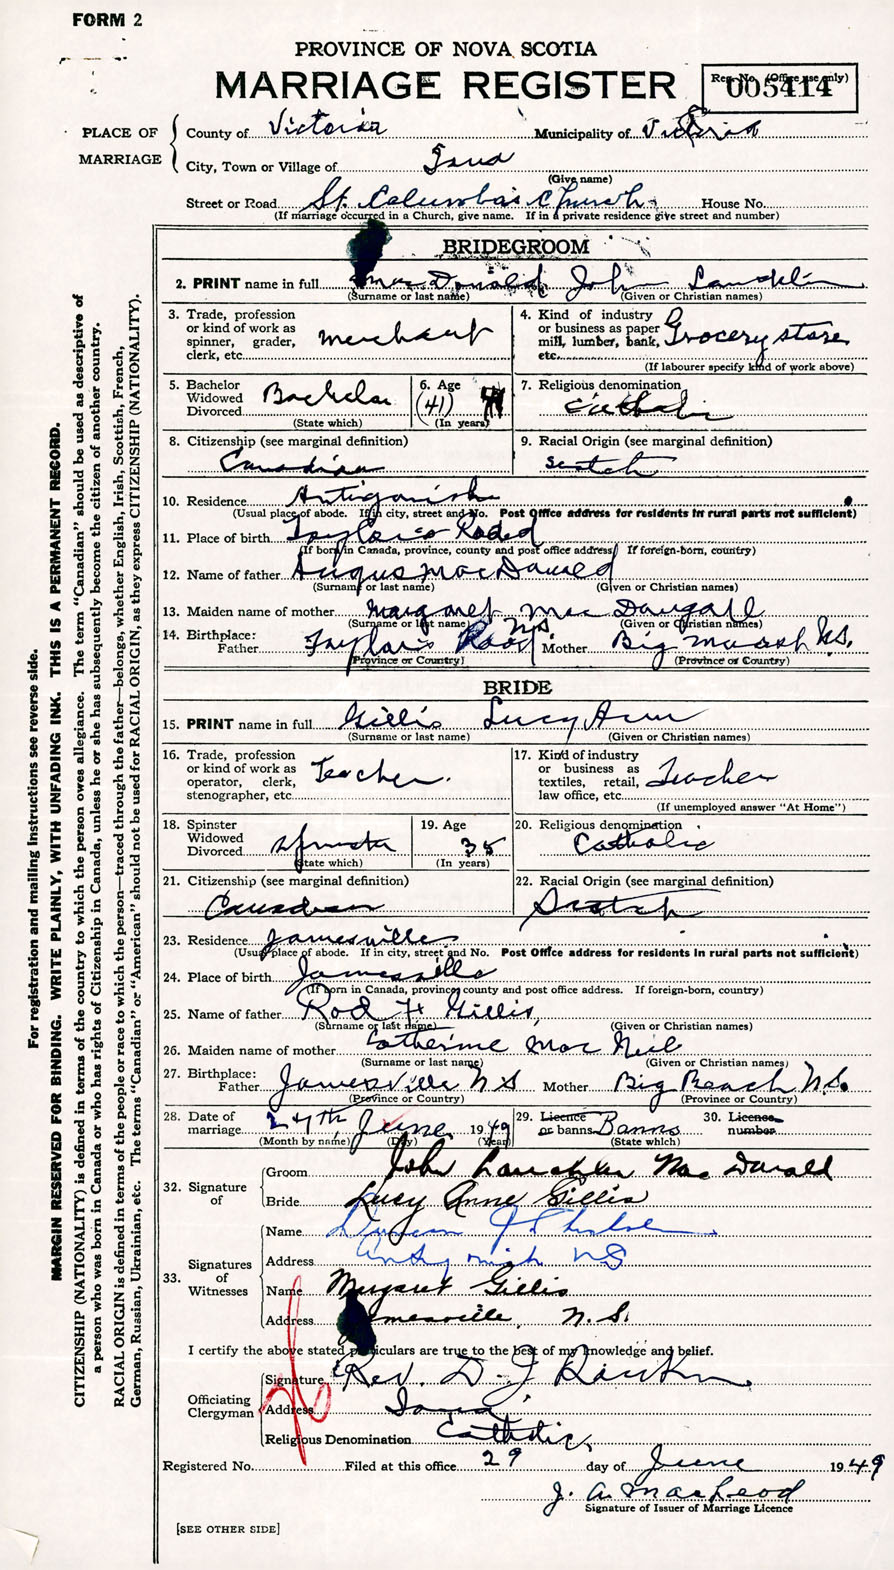 FORM 2
PROVINCE OF NOVA SCOTIA
MARRIAGE REGISTER
Reg. No. (Office use only)
005414
PLACE OF MARRIAGE
County of Victoria Municipality of Victoria
City, Town or Village of Iona
(Give name)
Street or Road St. Columba's Church House No.
(If marriage occurred in a Church, give name. If in a private residence give street and number)
BRIDEGROOM
2. PRINT name in full MacDonald John Lauchlin
(Surname or last name) (Given or Christian names)
3. Trade, profession or kind of work as spinner, grader, clerk, etc. merchant
4. Kind of industry or business as paper mill, lumber, bank, etc. Grocery store
(If labourer specify kind of work above)
5. Bachelor Widowed Divorced Bachelor
(State which)
6. Age (41)
(In years)
7. Religious denomination
Catholic
8. Citizenship (see marginal definition)
Canadian
9. Racial Origin (see marginal definition)
Scotch
10. Residence Antigonish
(Usual place of abode. If in city, street and No. Post Office address for residents in rural parts not sufficient)
11. Place of birth Taylor's Road
(If born in Canada, province, county and post office address. If foreign-born, country)
12. Name of father Angus MacDonald
(Surname or last name) (Given or Christian names)
13. Maiden name of mother Margaret MacDougall
(Surname or last name) (Given or Christian names)
14. Birthplace: Father Taylor's Road N.S. Mother Big Marsh N.S.
(Province or Country) (Province or Country)
BRIDE
15. PRINT name in full Gillis Lucy Ann
(Surname or last name) (Given or Christian names)
16. Trade, profession or kind of work as operator, clerk, stenographer, etc. Teacher.
17. Kind of industry or business as textiles, retail, law office, etc. Teacher
(If unemployed answer "At Home")
18. Spinster Widowed Divorced Spinster
(State which)
19. Age 35
(In years)
20. Religious denomination
Catholic
21. Citizenship (see marginal definition)
Canadian
22. Racial Origin (see marginal definition)
Scotch
23. Residence Jamesville
(Usual place of abode. If in city, street and No. Post Office address for residents in rural parts not sufficient)
24. Place of birth Jamesville
(If born in Canada, province, county and post office address. If foreign-born, country)
25. Name of father Rod H Gillis,
(Surname or last name) (Given or Christian names)
26. Maiden name of mother Catherine MacNeil
(Surname or last name) (Given or Christian names)
27. Birthplace: Father Jamesville N S Mother Big Beach N.S.
(Province or Country) (Province or Country)
28. Date of marriage 27th June 1949
(Month by name) (Day) (Year)
29. Licence or banns Banns
(State which)
30. Licence number
32. Signature of
Groom John Lauchlin MacDonald
Bride Lucy Anne Gillis
33. Signatures of Witnesses
Name Duncan J Chisholm
Address Antigonish NS
Name Margaret Gillis
Address Jamesville, N.S.
I certify the above stated particulars are true to the best of my knowledge and belief.
Officiating Clergyman
Signature Rev. D. J Rankin
Address Iona
Religious Denomination Catholic,
Registered No. Filed at this office 29 day of June 1949
J. A. MacLeod
Signature of Issuer of Marriage Licence
[SEE OTHER SIDE]
For registration and mailing instructions see reverse side.
MARGIN RESERVED FOR BINDING. WRITE PLAINLY, WITH UNFADING INK. THIS IS A PERMANENT RECORD.
CITIZENSHIP (NATIONALITY) is defined in terms of the country to which the person owes allegiance. The term "Canadian" should be used as descriptive of
a person who was born in Canada or who has rights of Citizenship in Canada, unless he or she has subsequently become the citizen of another country.
RACIAL ORIGIN is defined in terms of the people or race to which the person—traced through the father—belongs, whether English, Irish, Scottish, French,
German, Russian, Ukrainian, etc. The terms "Canadian" or "American" should not be used for RACIAL ORIGIN, as they express CITIZENSHIP (NATIONALITY).